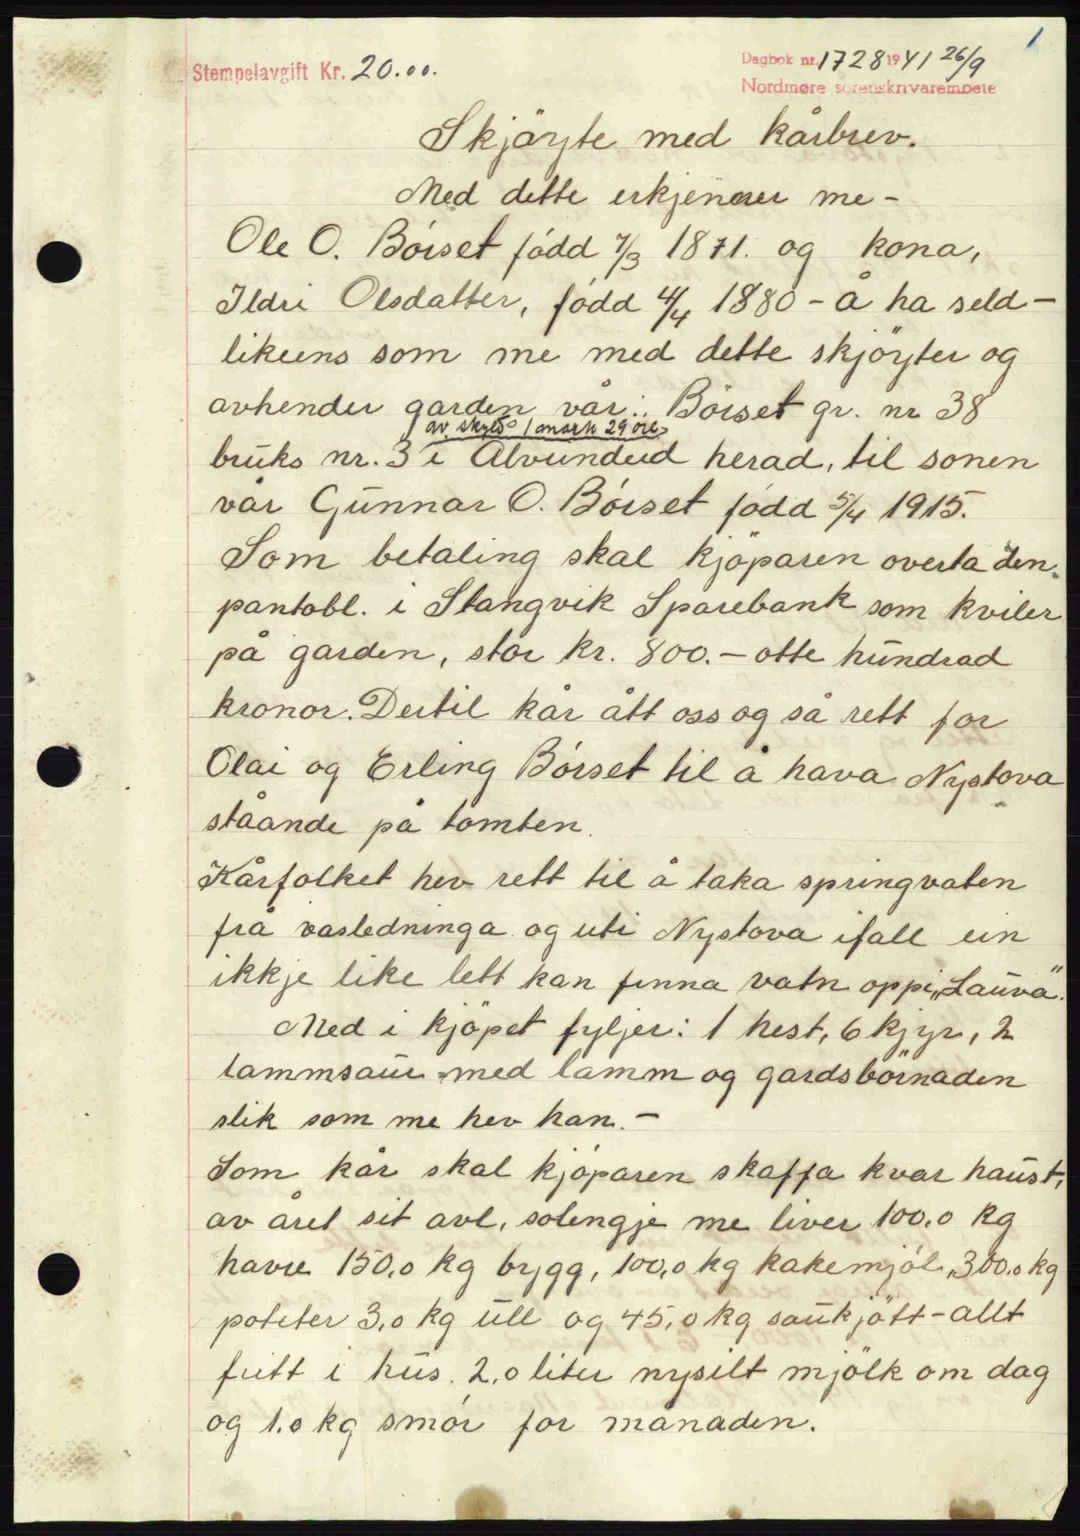 1
Stempelavgift Kr. 20.00.
Dagbok nr. 1728 1941 26/9
Nordmøre sorenskrivarembete
Skjöyte med kårbrev.
Med dette erkjenner me -
Ole O. Bórset fódd 7/3 1871. og kona,
Ildri Olsdatter, fódd 4/4 1880 - å ha seld -
likeens som me med dette skjöyter og
avhender garden vår: Börset gr. nr 38
av skyld 1 mark 29 öre
bruks nr. 3 i Ålvundeid herad, til sonen
vår Gunnar O. Bórset fódd 5/4 1915.
Som betaling skal kjöparen overta den
pantobl. i Stangvik Sparebank som kviler
på garden, stor kr. 800.- otte hundrad
kronor. Dertil kår ått oss og så rett for
Olai og Erling Bórset til å hava Nystova
ståande på tomten.
Kårfolket hev rett til å taka springvaten
frå vasledninga og uti Nystova ifall ein
ikkje like lett kan finna vatn oppi "Lauva".
Med i kjöpet fyljer: 1 hest, 6 kjyr, 2
lammsaue med lamm og gardsbörnaden
slik som me hev han. -
Som kår skal kjóparen skaffa kvar haust,
av året sit avl, solengje me liver 100,0 kg
havre 150,0 kg bygg, 100,0 kg kakemjöl, 300,0 kg
poteter 3,0 kg ull og 45,0 kg saukjött - allt
fritt i hus. 2,0 liter nysilt mjölk om dag
og 1.0 kg smör for månaden.